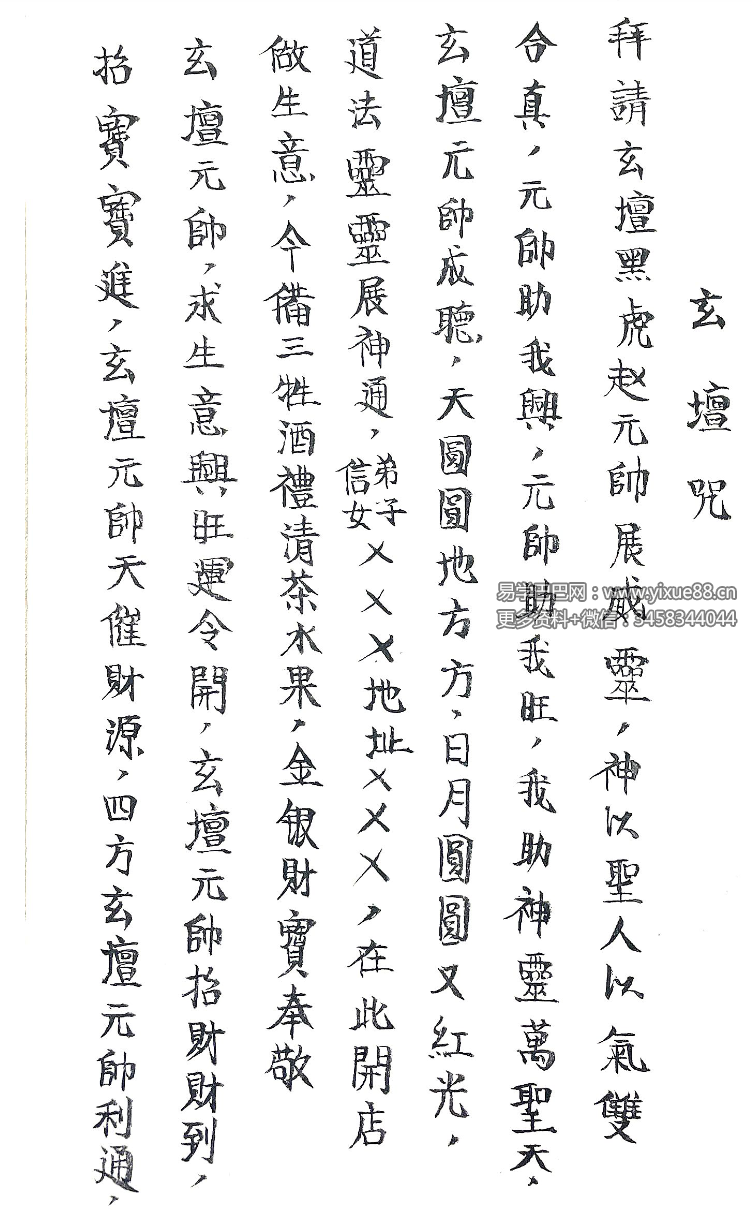 玄壇咒
拜請玄壇黑虎赵元帥展威靈，神以聖人以氣雙
合真，元帥助我興，元帥助我旺，我助神靈萬聖天，
玄壇元帥成聽，天圓圓地方方，日月圓圓又紅光，
道法靈靈展神通，弟子信女×××地址×××，在此開店
做生意，今備三牲酒禮清茶水果，金银財寶奉敬
玄壇元帥，求生意興旺運令開，玄壇元帥招財財到，
招寶寶進，玄壇元帥天催財源，四方玄壇元帥利通，
易学巴巴网：www.yixue88.cn
更多资料+微信：3458344044